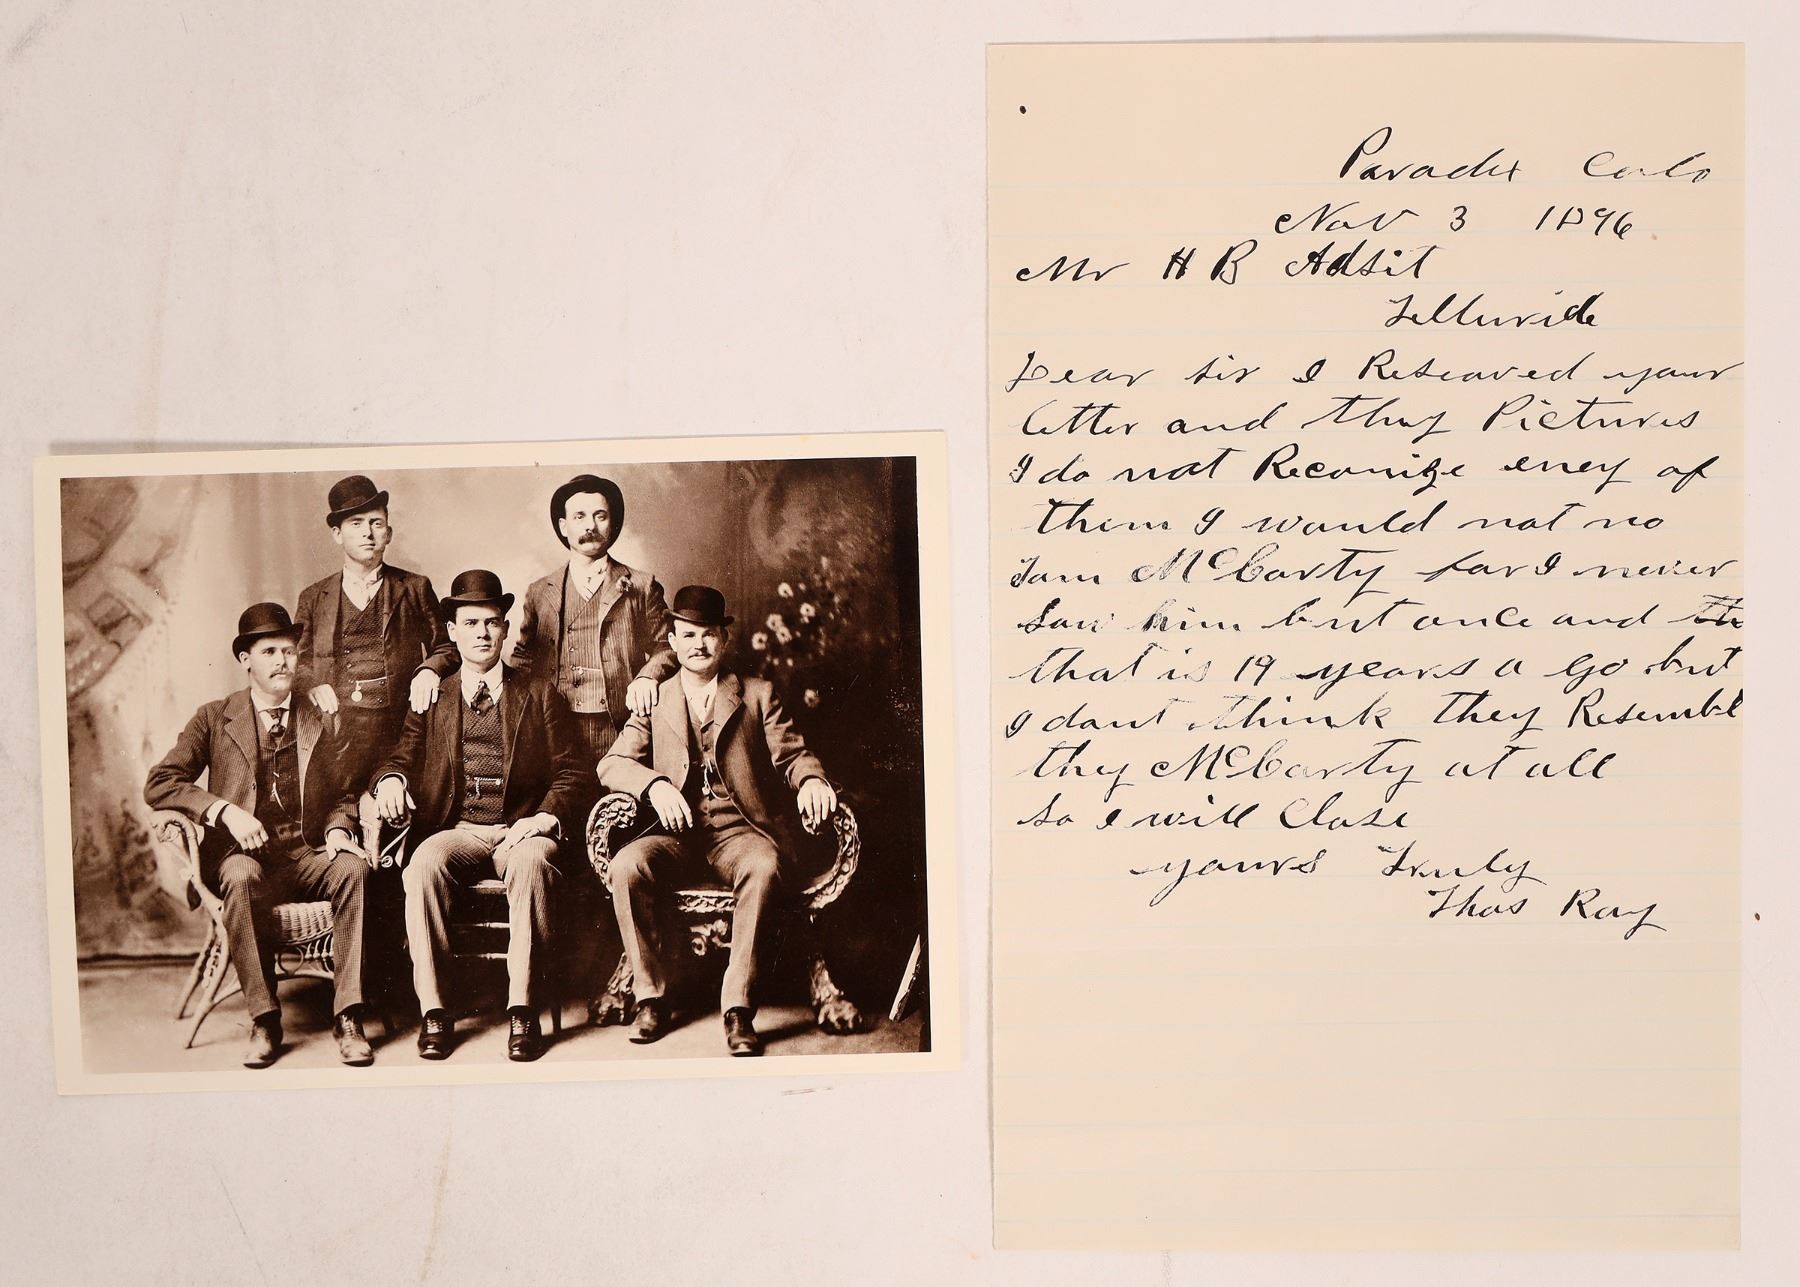 Paradix Colo
Nov 3 1896
Mr H B Adsit
Telluride
Dear sir I Reseaved your
letter and they Pictures
I do not Reconize eney of
them I would not no
Tom McCarty for I never
Saw him but once and th
that is 19 years a go but
I dont think they Resembl
they McCarty at all
so I will Close
yours Truly
Thos Ray